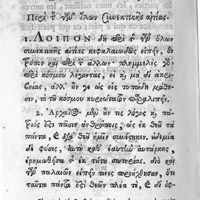 Περὶ τ τῶν ὅλων συνεκτικῆς αἰτίας.
1. ΛΟΙΠΟΝ δὴ περὶ τ τῶν ὅλων
συνεκτικῆς αἰτίας κεφαλαιωδῶς εἰπεῖν, ὃν
τρόπον καὶ περὶ τ ἄλλων· πλημμελὲς γὰρ
περὶ κόσμου λέγοντας, εἰ καὶ μὴ δι᾽ ἀκρι-
βείας, ἀλλ᾽ οὖν γε ὡς εἰς τυπώδη μάθη-
σιν, τὸ τοῦ κόσμου κυριώτατον παραλιπεῖν.
2. Ἀρχαῖος μὲν οὖν τις λόγος καὶ πά-
τριός ἐστι πᾶσιν ἀνθρώποις, ὡς ἐκ θεοῦ τὰ πάν-
τα, καὶ διὰ θεοῦ ἡμῖν συνέστηκεν. οὐδεμία
δὲ φύσις, αὐτὴ καθ᾽ ἑαυτὴν αὐτάρκης,
ἐρημωθεῖσα τ ἐκ τούτου σωτηρίας. διὸ
καὶ τῶν παλαιῶν εἰπεῖν τινες προήχθησαν, ὅτι
ταῦτα πάντα ἐστὶ θεῶν πλέα τὰ, καὶ δι᾽ ὀφ-